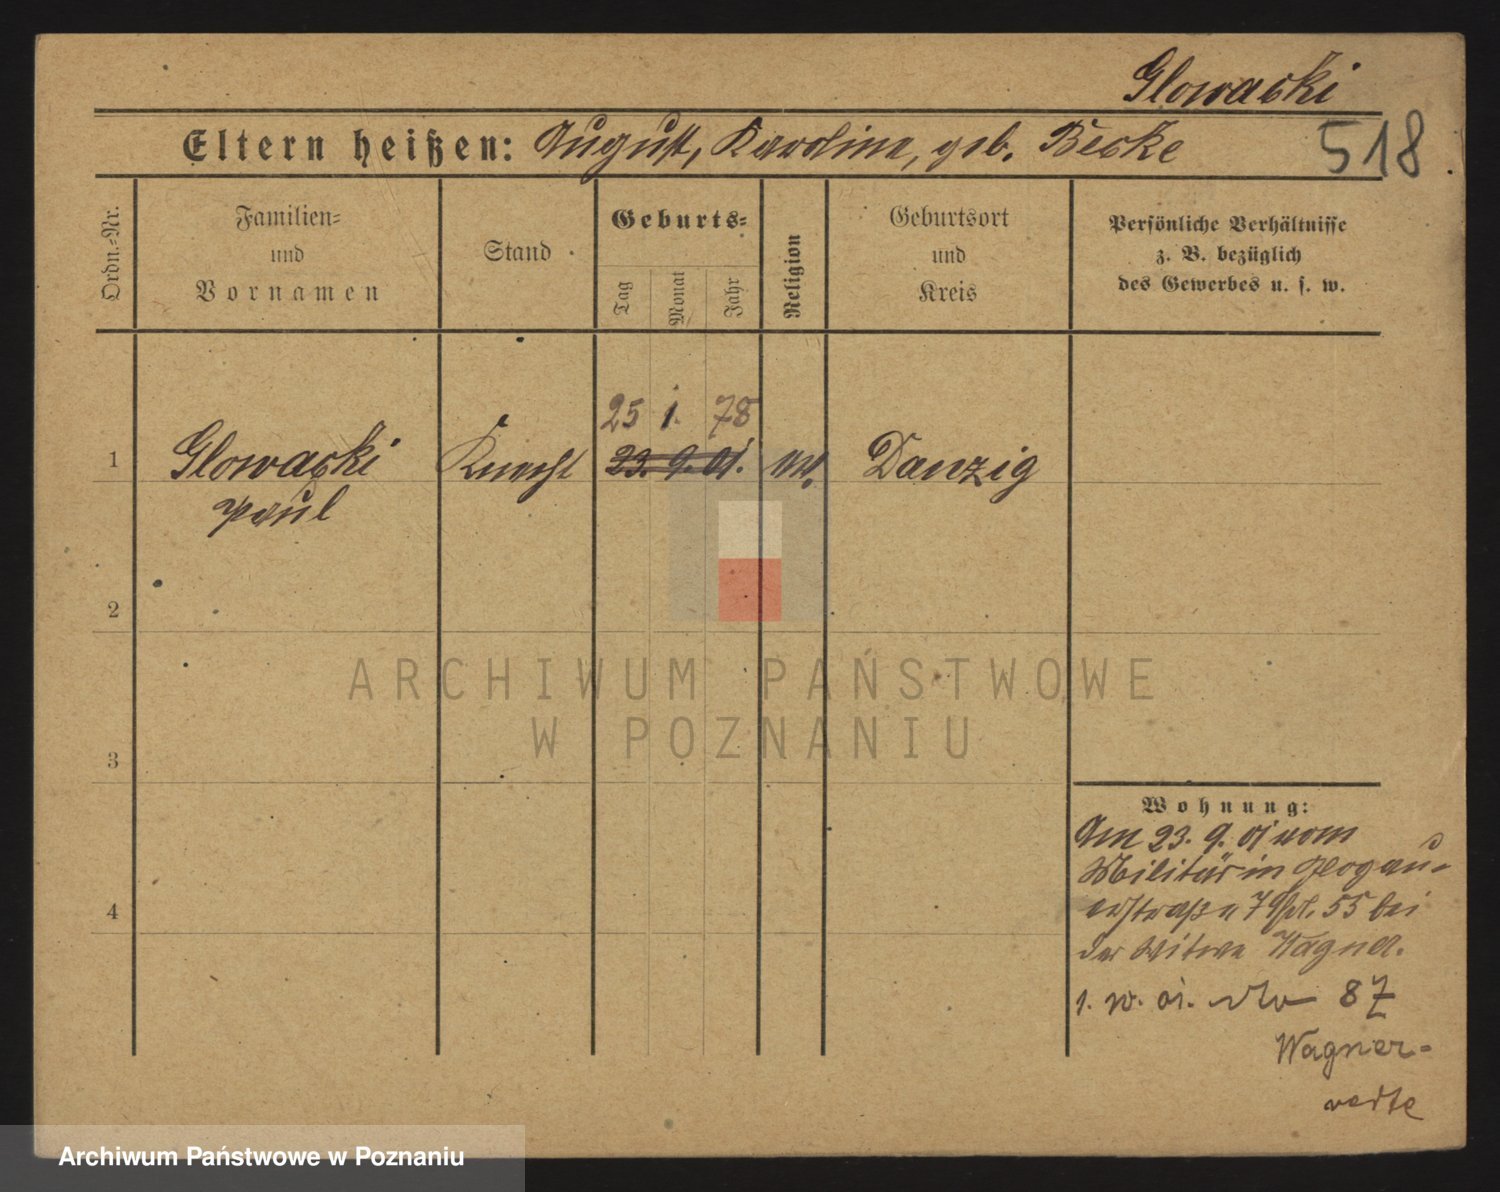 Glowacki
518
Eltern heißen: August, Karoline, geb. Becke
Ordn.=Nr.
Familien=
und
Vornamen
Stand
Geburts=
Tag
Monat
Jahr
Religion
Geburtsort
und
Kreis
Persönliche Verhältnisse
z. B. bezüglich
des Gewerbes u. s. w.
25 1. 78
1 Glowacki Knecht 23. 9. 01. ev. Danzig
Paul
2
3
4
Wohnung:
Am 23. 9. 01 vom
Militär in Glogau-
erstraße 79 55 bei
der Witwe Wagner.
1. 01. dto 87
Wagner=
ARCHIWUM PAŃSTWOWE
W POZNANIU
Archiwum Państwowe w Poznaniu